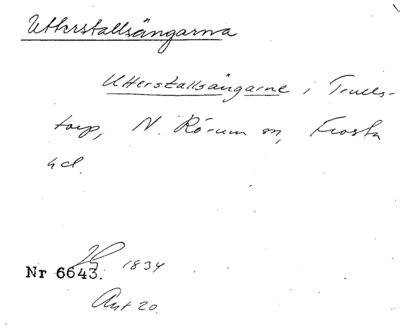 Utterstallsängarna
Utterstallsängarne i Truls-
torp, N. Rörum sn, Frosta
hd.
Nr 6643. 1834
Ant 20.